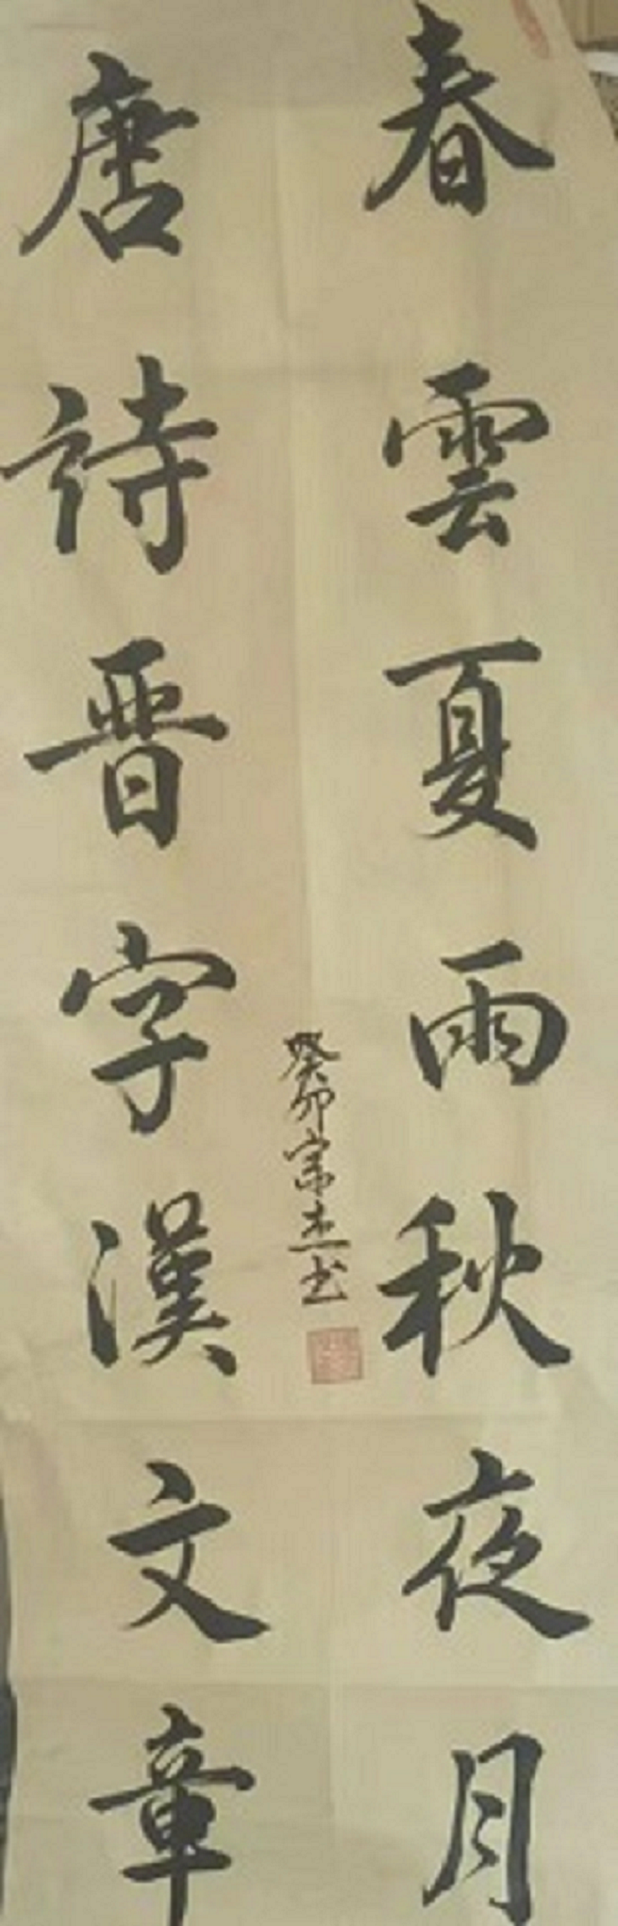 春雲夏雨秋夜月
唐詩晋字漢文章
癸卯宗杰书